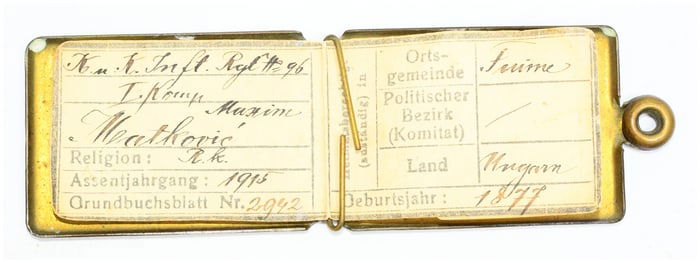 K. u. K. Inft. Rgt. № 96
I. Komp
Maxim
Matković
Religion: R. k.
Assentjahrgang: 1915
Grundbuchsblatt Nr. 2942
(zuständig) in
Orts-
gemeinde
Fiume
Politischer
Bezirk
(Komitat)
/
Land
Ungarn
Geburtsjahr: 1877